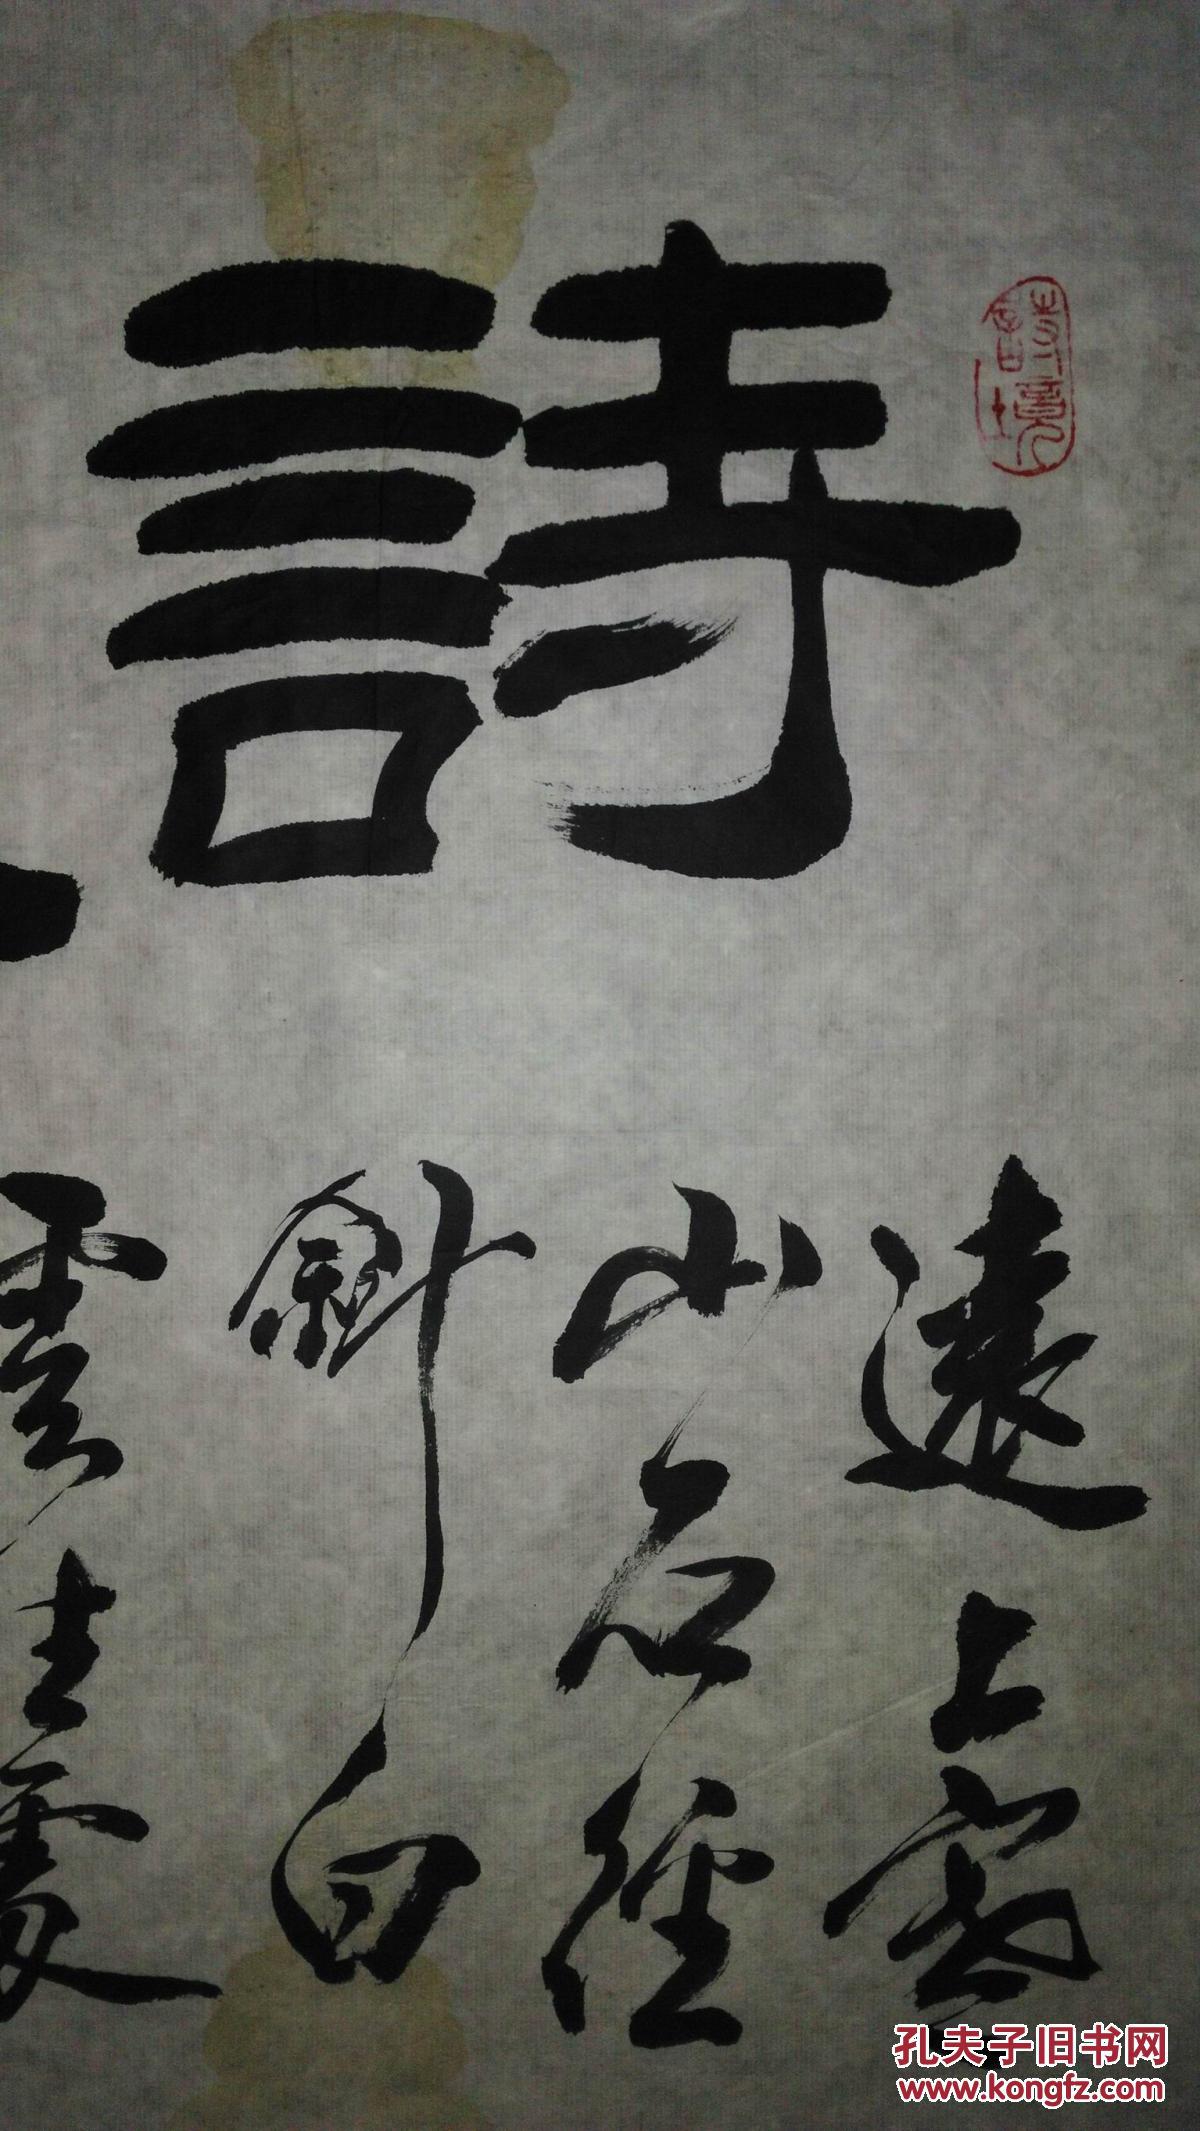 詩
遠上寒
山石徑
斜白
雲生處
孔夫子旧书网
www.kongfz.com